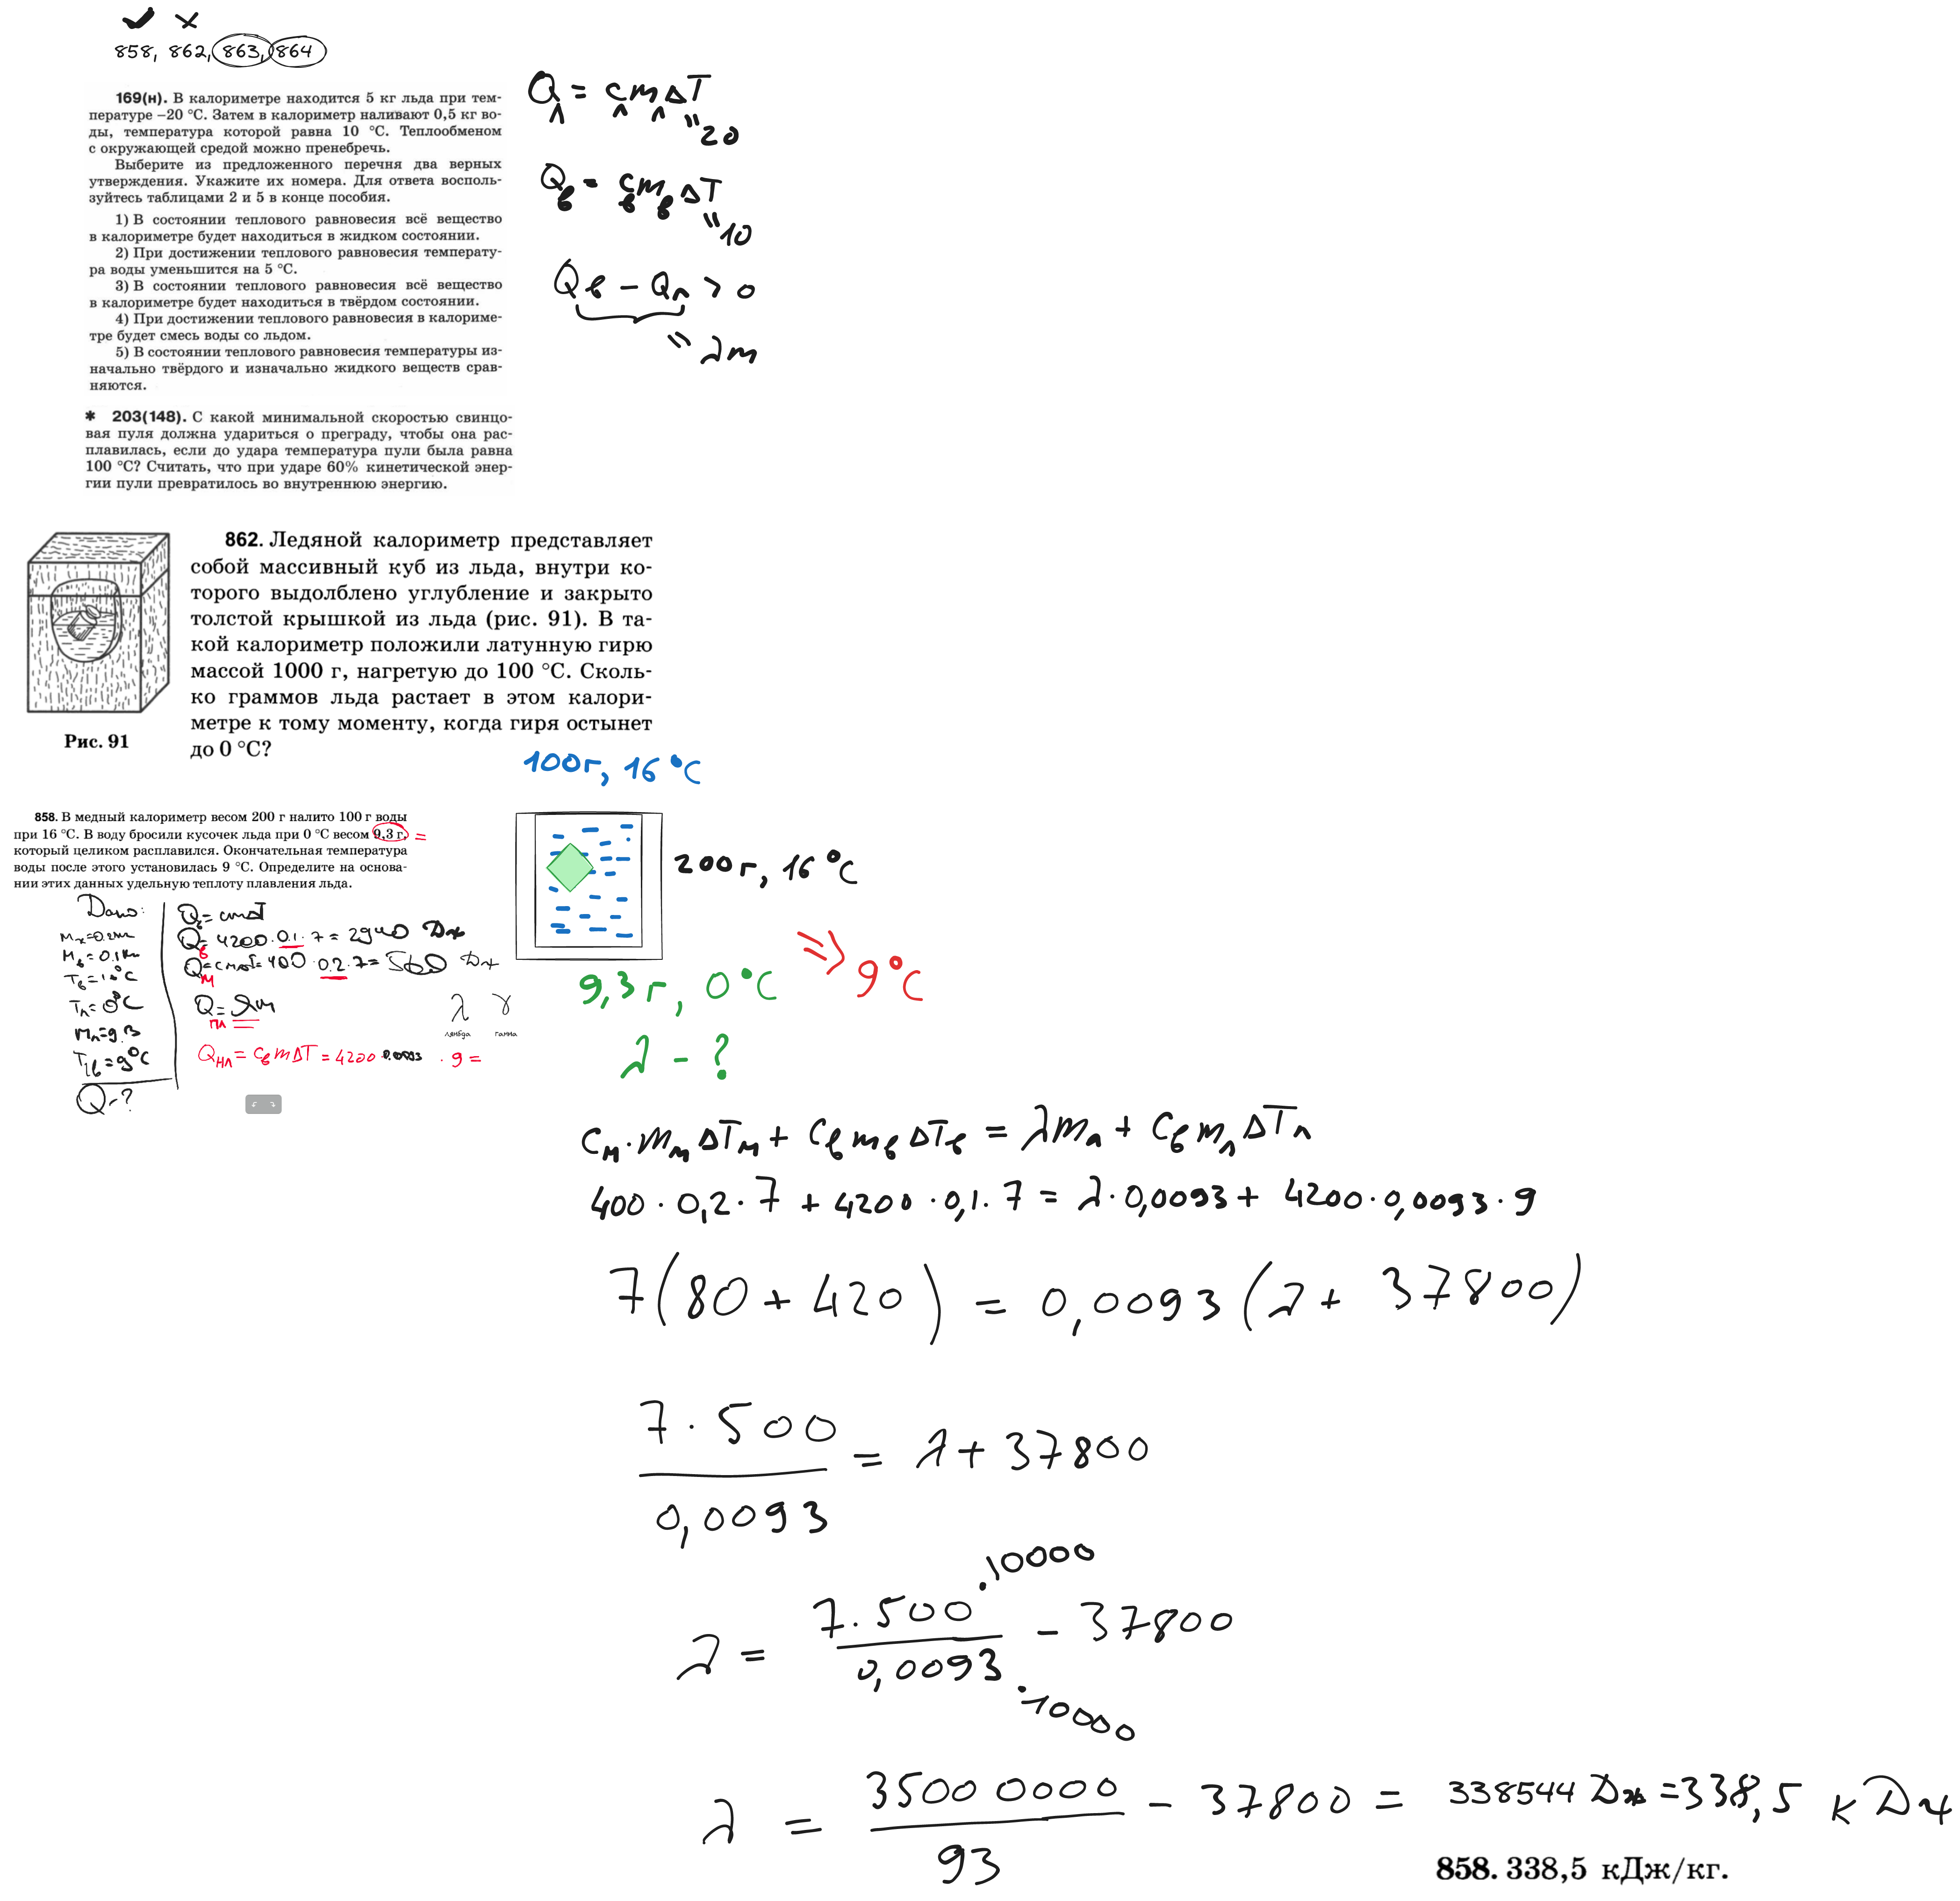 858, 862, 863, 864
169(н). В калориметре находится 5 кг льда при тем-
пературе −20 °С. Затем в калориметр наливают 0,5 кг во-
ды, температура которой равна 10 °С. Теплообменом
с окружающей средой можно пренебречь.
Выберите из предложенного перечня два верных
утверждения. Укажите их номера. Для ответа восполь-
зуйтесь таблицами 2 и 5 в конце пособия.
1) В состоянии теплового равновесия всё вещество
в калориметре будет находиться в жидком состоянии.
2) При достижении теплового равновесия температу-
ра воды уменьшится на 5 °С.
3) В состоянии теплового равновесия всё вещество
в калориметре будет находиться в твёрдом состоянии.
4) При достижении теплового равновесия в калориме-
тре будет смесь воды со льдом.
5) В состоянии теплового равновесия температуры из-
начально твёрдого и изначально жидкого веществ срав-
няются.
Qл = cлmлΔT
"20
Qв = cвmвΔT
"10
Qв − Qл > 0
" λm
* 203(148). С какой минимальной скоростью свинцо-
вая пуля должна удариться о преграду, чтобы она рас-
плавилась, если до удара температура пули была равна
100 °С? Считать, что при ударе 60% кинетической энер-
гии пули превратилось во внутреннюю энергию.
862. Ледяной калориметр представляет
собой массивный куб из льда, внутри ко-
торого выдолблено углубление и закрыто
толстой крышкой из льда (рис. 91). В та-
кой калориметр положили латунную гирю
массой 1000 г, нагретую до 100 °С. Сколь-
ко граммов льда растает в этом калори-
метре к тому моменту, когда гиря остынет
до 0 °С?
Рис. 91
858. В медный калориметр весом 200 г налито 100 г воды
при 16 °С. В воду бросили кусочек льда при 0 °С весом 9,3 г, =
который целиком расплавился. Окончательная температура
воды после этого установилась 9 °С. Определите на основа-
нии этих данных удельную теплоту плавления льда.
Дано:
Mк=0.2кг
Mв=0.1кг
Tв=16°C
Tл=0°C
Mл=9.3
T1в=9°C
Q-?
Q=cmΔT
Qв=4200·0.1·7=2940 Дж
Qм=cmΔT=400·0.2·7=560 Дж
Qпл=λm
λ γ
лямбда гамма
Qнл = cвmΔT = 4200·0.0093 · 9 =
100г, 16°C
200г, 16°C
9,3г, 0°C
=> 9°C
λ - ?
cм·mмΔTм + cвmвΔTв = λmл + cвmлΔTл
400·0,2·7 + 4200·0,1·7 = λ·0,0093 + 4200·0,0093·9
7(80 + 420) = 0,0093(λ + 37800)
7·500 / 0,0093 = λ + 37800
λ = 7·500 ·10000 / 0,0093 ·10000 − 37800
λ = 35000000 / 93 − 37800 = 338544 Дж = 338,5 кДж
858. 338,5 кДж/кг.